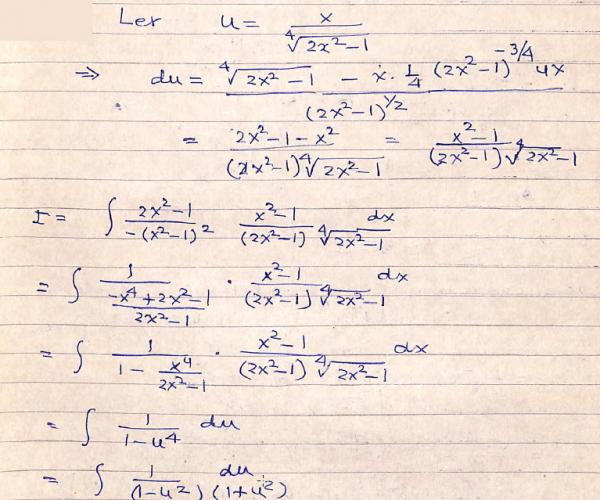 Let u = x / ∜(2x²-1)
⇒ du = (∜(2x²-1) - x · 1/4 (2x²-1)^(-3/4) 4x) / (2x²-1)^(1/2)
= (2x²-1-x²) / ((2x²-1) ∜(2x²-1)) = (x²-1) / ((2x²-1) ∜(2x²-1))
I = ∫ (2x²-1) / (-(x²-1)²) (x²-1) / ((2x²-1) ∜(2x²-1)) dx
= ∫ 1 / ((-x⁴+2x²-1) / (2x²-1)) · (x²-1) / ((2x²-1) ∜(2x²-1)) dx
= ∫ 1 / (1 - x⁴/(2x²-1)) · (x²-1) / ((2x²-1) ∜(2x²-1)) dx
= ∫ 1 / (1-u⁴) du
= ∫ 1 / ((1-u²) (1+u²)) du